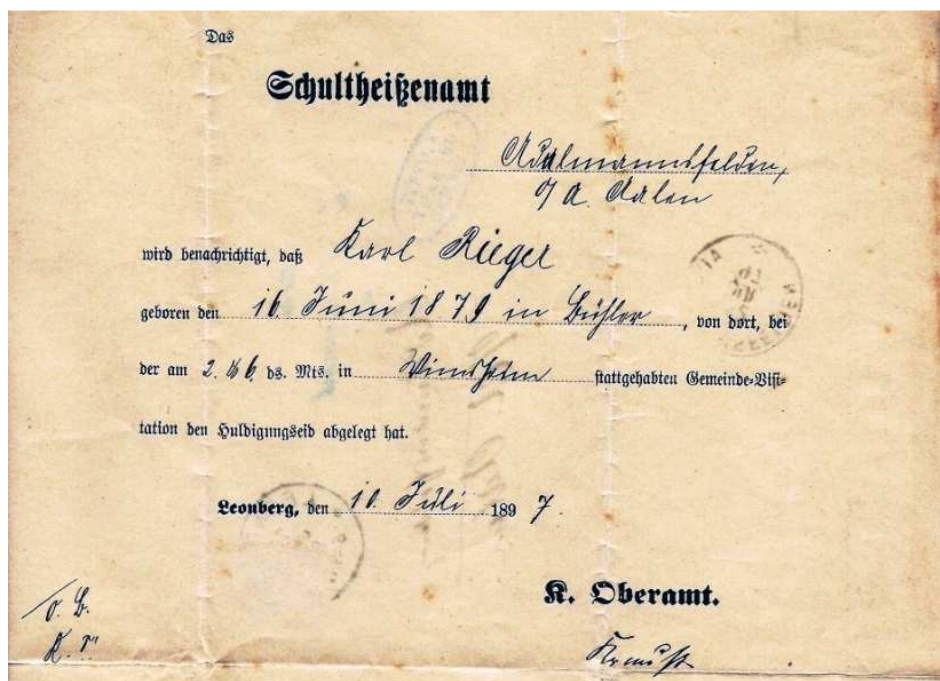 Das
Schultheißenamt
Adelmannsfelden,
O/A. Aalen
wird benachrichtigt, daß Karl Rieger
geboren den 16. Juni 1879 in Bühler, von dort, bei
der am 2. 6. ds. Mts. in Wimsheim stattgehabten Gemeinde-Visi-
tation den Huldigungseid abgelegt hat.
Leonberg, den 10. Juli 1897.
K. Oberamt.